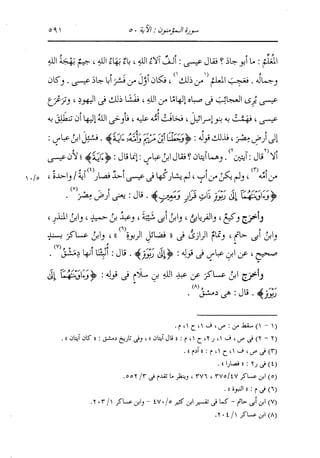 سورة المؤمنون : الآية ٥٠ ٥٩١
المُعلِّمُ : ما أبو جادٍ ؟ فقال عيسى : ألفٌ آلاءُ اللهِ ، باءٌ بَهَاءُ اللهِ ، جيمٌ بَهْجَةُ اللهِ
وجمالُه . فعجِب المعلمُ (١ من ذلك ١) ، فكان أولَ من فسَّر أبا جادَ عيسى . وكان
عيسى يُرى العجائبَ فى صباه إلهامًا من اللهِ ، ففشَا ذلك فى اليهودِ ، وتَرَعْرَع
عيسى ، فهمَّت به بنو إسرائيلَ ، فخافَت أمُّه عليه ، فأوحَى اللهُ إليها أن تنطلِقَ به
إلى أرضِ مِصْرَ ، فذلك قولُه : ﴿وَجَعَلْنَا ابْنَ مَرْيَمَ وَأُمَّهُ ءَايَةً﴾ . فسُئِل ابنُ عباسٍ :
ألا (٢ قال : آيتين ٢) . وهما آيتان ؟ فقال ابنُ عباسٍ : إنما قال : ﴿ءَايَةً﴾ ؛ لأن عيسى
من أمِّه (٣) ، ولم يكنْ من أبٍ ، لم يشارِكْها فى عيسى أحدٌ فصار (٤) آيةً / واحدةً ، ١٠/٥
﴿وَءَاوَيْنَٰهُمَآ إِلَىٰ رَبْوَةٍ ذَاتِ قَرَارٍ وَمَعِينٍ﴾ . قال : يعنى أرضَ مِصْرَ (٥) .
وأخرَج وكيعٌ ، والفريابىُّ ، وابنُ أبى شَيْبَةَ ، وعبدُ بنُ حميدٍ ، وابنُ المنذرِ ،
وابنُ أبى حاتمٍ ، وتمامٌ الرازىُّ فى « فضائلِ النبوةِ (٦) » ، وابنُ عساكرَ بسندٍ
صحيحٍ ، عن ابنِ عباسٍ فى قولِه : ﴿إِلَىٰ رَبْوَةٍ﴾ . قال : أُنبِئْنا أنها دِمَشْقُ (٧) .
وأخرَج ابنُ عساكرَ عن عبدِ اللهِ بنِ سلَامٍ فى قولِه : ﴿وَءَاوَيْنَٰهُمَآ إِلَىٰ
رَبْوَةٍ﴾ . قال : هى دمشقُ (٨) .
(١ - ١) سقط من : ص ، ف ١ ، ح ١ ، م .
(٢ - ٢) فى ص ، ف ١ ، ر ٢ ، ح ١ ، م : « قال آيتان » ، وفى تاريخ دمشق : « كان آيتان » .
(٣) فى ص ، ف ١ ، ح ١ ، م : « آدم » .
(٤) فى ر ٢ : « فصارا » .
(٥) ابن عساكر ٤٧/ ٣٧٥ ، ٣٧٦ ، وينظر ما تقدم فى ٣/ ٥٥٢ .
(٦) فى م : « النبوة » .
(٧) ابن أبى حاتم - كما فى تفسير ابن كثير ٥/ ٤٧٠ - وابن عساكر ١/ ٢٠٣ .
(٨) ابن عساكر ١/ ٢٠٤ .